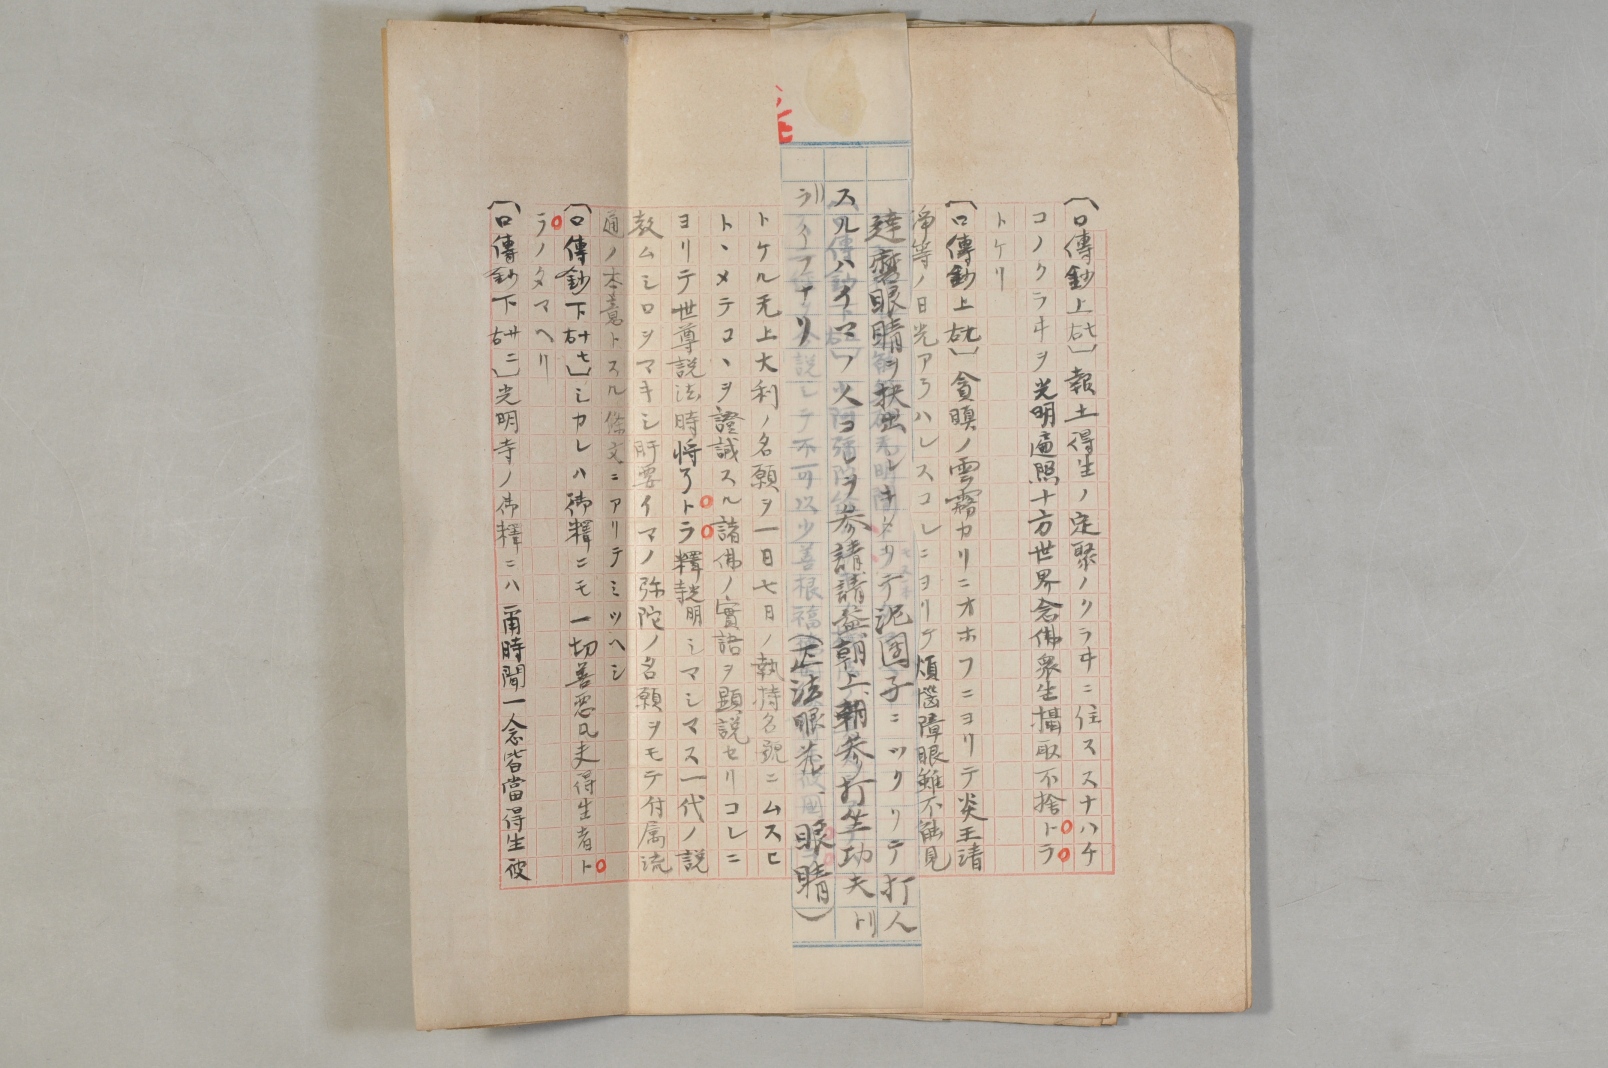 〔口傳鈔上〕報土得生ノ定聚ノクラヰニ住ススナハチ
コノクラヰヲ光明遍照十方世界念佛衆生攝取不捨トラ
トケリ
〔口傳鈔上〕貪瞋ノ雲霧カリニオホフニヨリテ炎王清
淨等ノ日光アラハレスコレニヨリテ煩惱障眼雖不能見
達磨眼睛ヲ抉出シキタリテ泥團子ニツクリテ打人
スルハイマノ人コレヲ参請請益朝上朝参打坐功夫トリ
ライフナリ（正法眼蔵、眼睛）
トケル无上大利ノ名願ヲ一日七日ノ執持名號ニムスヒ
トヽメテコヽヲ證誠スル諸佛ノ實語ヲ顯説セリコレニ
ヨリテ世尊説法時將了トラ釋光明寺シマシマス一代ノ説
教ムシロヲマキシ肝要イマノ弥陀ノ名願ヲモテ付属流
通ノ本意トスル條文ニアリテミツヘシ
〔口傳鈔下〕シカレハ御釋ニモ一切善悪凡夫得生者ト
ラノタマヘリ
〔口傳鈔下〕光明寺ノ御釋ニハ爾時聞一念皆當得生彼